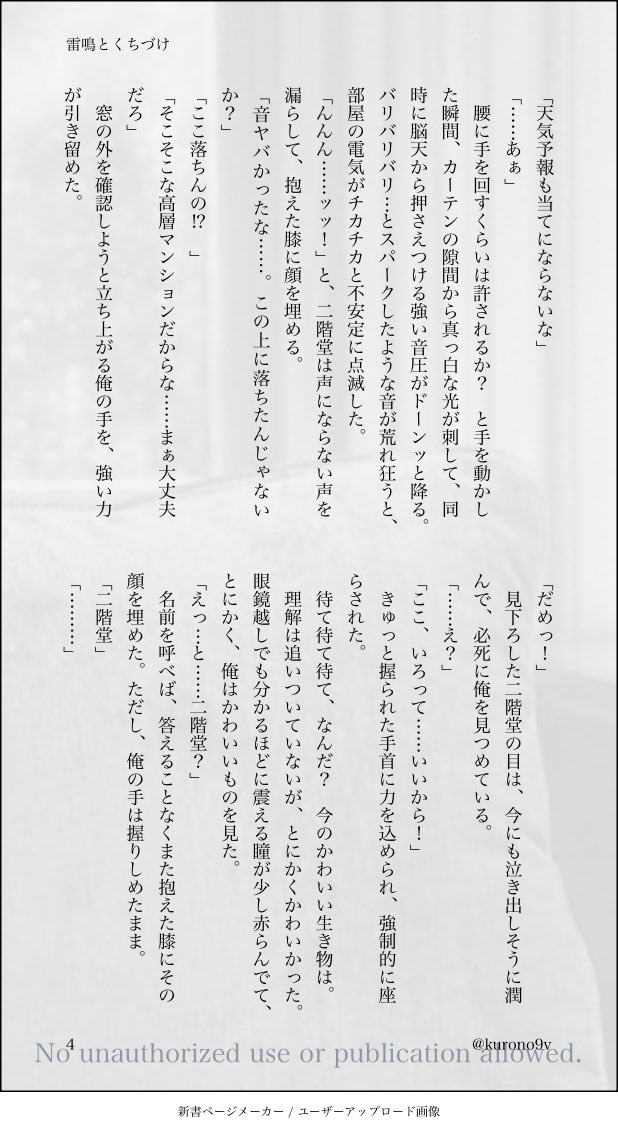 雷鳴とくちづけ
「天気予報も当てにならないな」
「……あぁ」
　腰に手を回すくらいは許されるか？　と手を動かし
た瞬間、カーテンの隙間から真っ白な光が刺して、同
時に脳天から押さえつける強い音圧がドーンッと降る。
バリバリバリ…とスパークしたような音が荒れ狂うと、
部屋の電気がチカチカと不安定に点滅した。
「んんん……ッッ！」と、二階堂は声にならない声を
漏らして、抱えた膝に顔を埋める。
「音ヤバかったな……。この上に落ちたんじゃない
か？」
「ここ落ちんの⁉　」
「そこそこな高層マンションだからな……まぁ大丈夫
だろ」
　窓の外を確認しようと立ち上がる俺の手を、強い力
が引き留めた。
「だめっ！」
　見下ろした二階堂の目は、今にも泣き出しそうに潤
んで、必死に俺を見つめている。
「……え？」
「ここ、いろって……いいから！」
　きゅっと握られた手首に力を込められ、強制的に座
らされた。
　待て待て待て、なんだ？　今のかわいい生き物は。
　理解は追いついていないが、とにかくかわいかった。
眼鏡越しでも分かるほどに震える瞳が少し赤らんでて、
とにかく、俺はかわいいものを見た。
「えっ…と……二階堂？」
　名前を呼べば、答えることなくまた抱えた膝にその
顔を埋めた。ただし、俺の手は握りしめたまま。
「二階堂」
「………」
4
@kurono9v
No unauthorized use or publication allowed.
新書ページメーカー / ユーザーアップロード画像